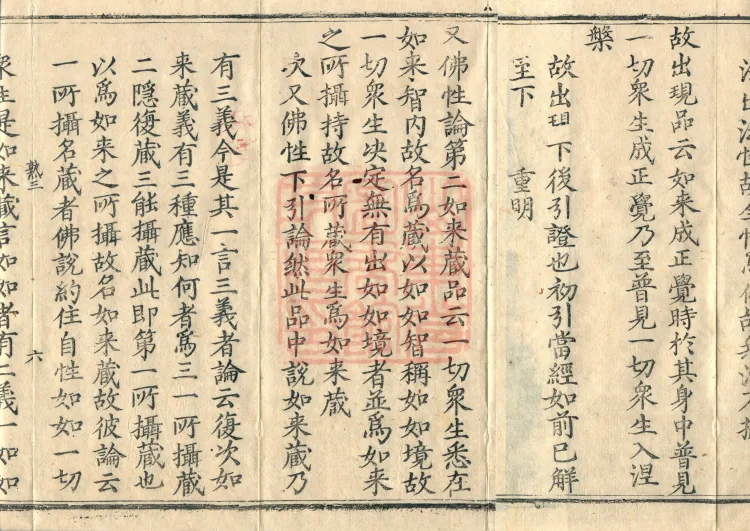 故出現品云如来成正覺時於其身中普見
一切衆生成正覺乃至普見一切衆生入涅
槃
故出現下後引證也初引當經如前已解
至下　重明
又佛性論第二如来蔵品云一切衆生悉在
如来智内故名為蔵以如如智稱如如境故
一切衆生决定無有出如如境者並為如来
之所攝持故名所蔵衆生為如来蔵
次又佛性下引論然此品中說如来蔵乃
有三義今是其一言三義者論云復次如
来蔵義有三種應知何者為三一所攝蔵
二隠復蔵三能攝蔵此即第一所攝蔵也
以為如来之所攝故名如来蔵故彼論云
一所攝名蔵者佛說約住自性如如一切
六
衆生是如来蔵言如如者有二義一如如